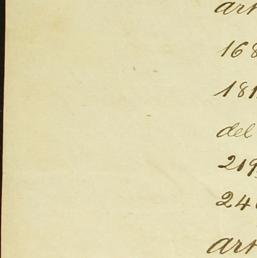 art
168
181
del
219
24
art